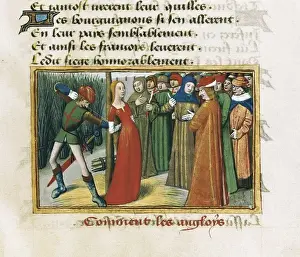 Et tantost tirerent leur guilles
Les bourguignons si sen allerent
En leur pars semblablement
Et ainsi les francois leuerent
Ledit siege honnorablement
Comment les angloys